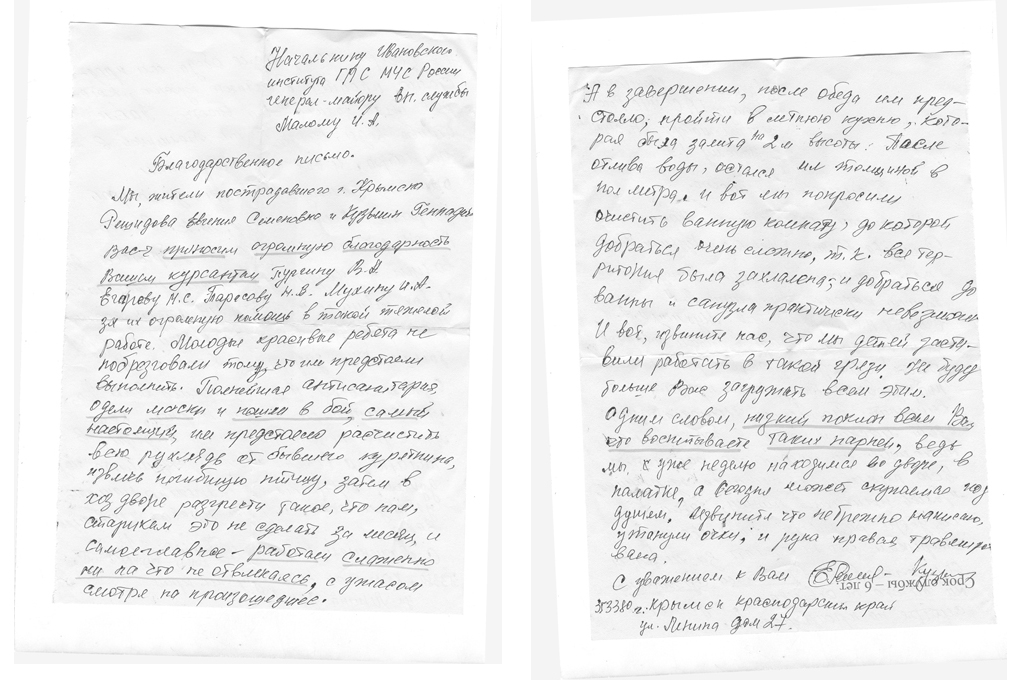 Начальнику Ивановского
института ГПС МЧС России
генерал-майору вн. службы
Малому И.А.
Благодарственное письмо.
Мы, жители пострадавшего г. Крымска
Семеновна и Кузьмин Геннадий
Вас-ч приносим огромную благодарность
Вашим курсантам Пургину В.А
Егорову Н.С. Тарасову Н.В. Мухину И.А.
за их огромную помощь в такой тяжелой
работе. Молодые красивые ребета не
побрезговали тому, что им предстояло
выполнить. Полнейшая антисанитария,
одели маски и пошли в бой, самый
настоящий, им предстояло расчистить
всю рухлядь от бывшего курятника,
извлечь погибшую птицу, затем в
хоз дворе разгрести такое, что нам,
старикам это не сделать за месяц и
самоеглавное - работали слаженно
ни на что не отвлекаясь, с ужасом
смотря на произошедшее.
А в завершении, после обеда им пред-
стояло, пройти в летнюю кухню, кото-
рая была залита на 2 м высоты. После
отлива воды, остался ил толщиной в
пол метра. и вот мы попросили
очистить ванную комнату, до которой
добраться очень сложно, т.к. вся тер-
ритория была захламлена, и добраться до
ванны и санузла практически невозможно
И вот, извините нас, что мы детей заста-
вили работать в такой грязи. Не буду
больше Вас загружать всем этим.
Одним словом, низкий поклон всем Вам,
кто воспитывает таких парней, ведь
мы, уже неделю находимся во дворе, в
палатке, а сегодня может скупаемся под
душем. Извените что небрежно написано,
утонули очки, и рука правая травмиро
вана.
С уважением к Вам
Срок службы – 6 лет
353380 г. Крымск краснодарский край
ул. Ленина дом 27.